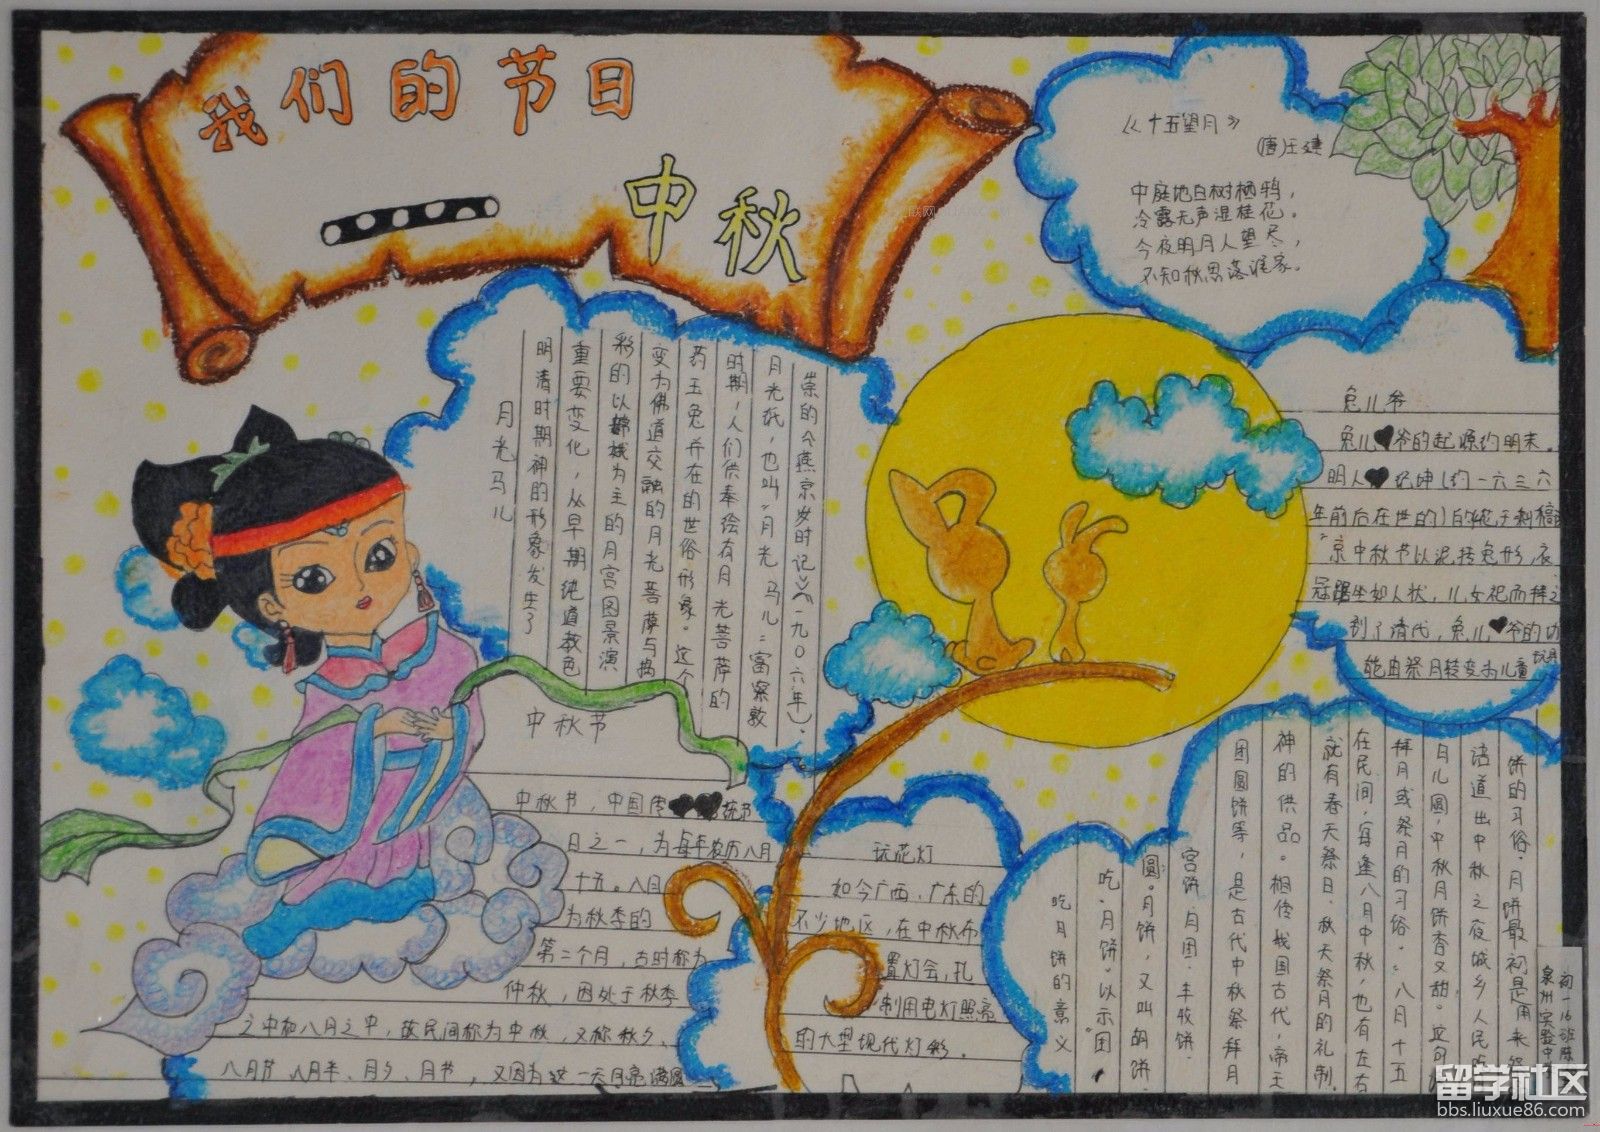 我们的节日
中秋
《十五望月》
(唐)王建
中庭地白树栖鸦，
冷露无声湿桂花。
今夜明月人望尽，
不知秋思落谁家。
月光马儿
明清时期神的形象发生了
重要变化，从早期纯道教色
彩的以嫦娥为主的月宫图景演
变为佛道交融的月光菩萨与捣
药玉兔并在的世俗形象。这个
时期，人们供奉绘有月光菩萨的
月光纸，也叫"月光马儿"富察敦
崇的《燕京岁时记》(一九〇六年)。
兔儿爷
兔儿爷的起源约明末。
明人纪坤(约一六三六
年前后在世的)的
京中秋节以泥抟兔形，衣
冠踞坐如人状，儿女祀而拜之
到了清代，兔儿爷的功
能由祭月转变为儿童玩具
中秋节
中秋节，中国传统节
日之一，为每年农历八月
十五。八月
为秋季的
第二个月，古时称为
仲秋，因处于秋季
之中和八月之中，故民间称为中秋，又称秋夕、
八月节、八月半、月夕、月节，又因为这一天月亮满圆
玩花灯
如今广西、广东的
不少地区，在中秋布
置灯会，扎
制用电灯照亮
的大型现代灯彩。
吃月饼的意义
吃"月饼"以示"团
圆"。月饼，又叫胡饼、
宫饼、月团、丰收饼、
团圆饼等，是古代中秋祭拜月
神的供品。相传我国古代，帝王
就有春天祭日、秋天祭月的礼制。
在民间，每逢八月中秋，也有左右
拜月或祭月的习俗。"八月十五
月儿圆，中秋月饼香又甜"，这句
话道出中秋之夜城乡人民吃
饼的习俗。月饼最初是用来祭
初一16班陈
泉州实验中
留学社区
bbs.liuxue86.com